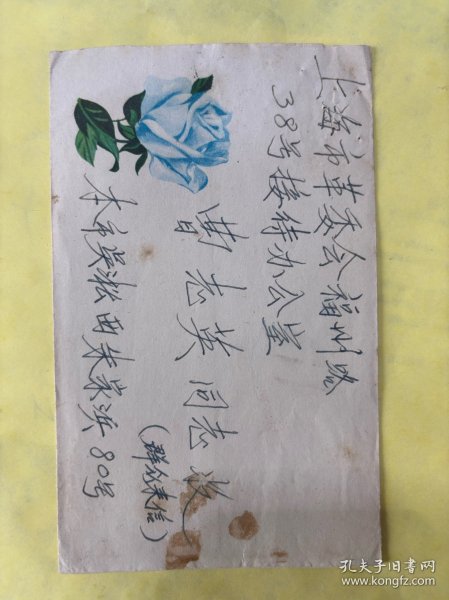 上海市革委会福州路
38号接待办公室
曹志英同志收
(群众来信)
本市吴淞西朱家浜80号
孔夫子旧书网
www.kongfz.com